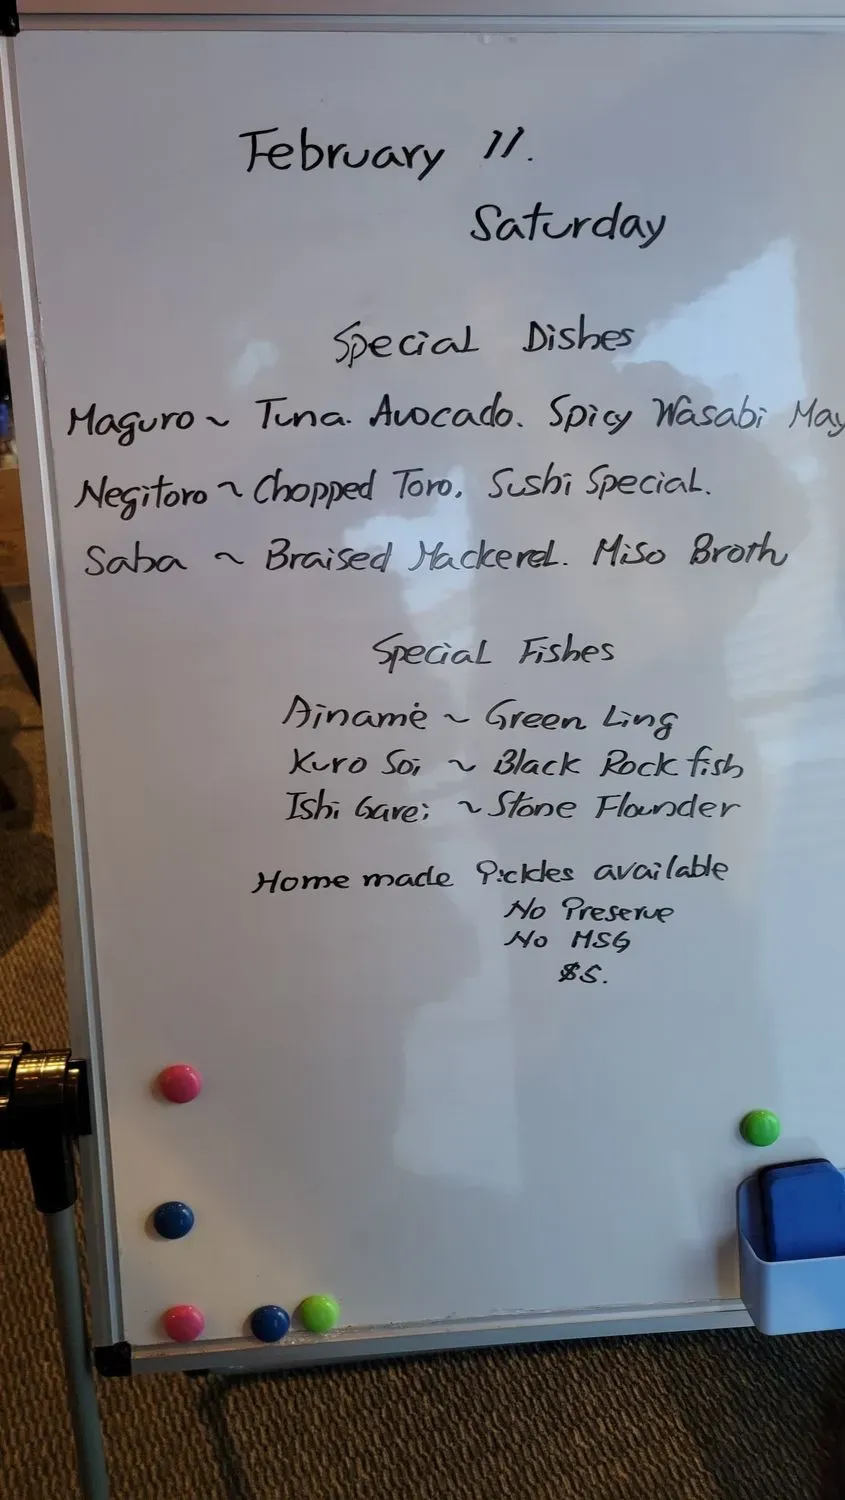 February 11.
Saturday
Special Dishes
Maguro ~ Tuna. Avocado. Spicy Wasabi May
Negitoro ~ Chopped Toro. Sushi Special.
Saba ~ Braised Mackerel. Miso Broth
Special Fishes
Ainame ~ Green Ling
Kuro Soi ~ Black Rock fish
Ishi Garei ~ Stone Flounder
Home made Pickles available
No Preserve
No MSG
$5.